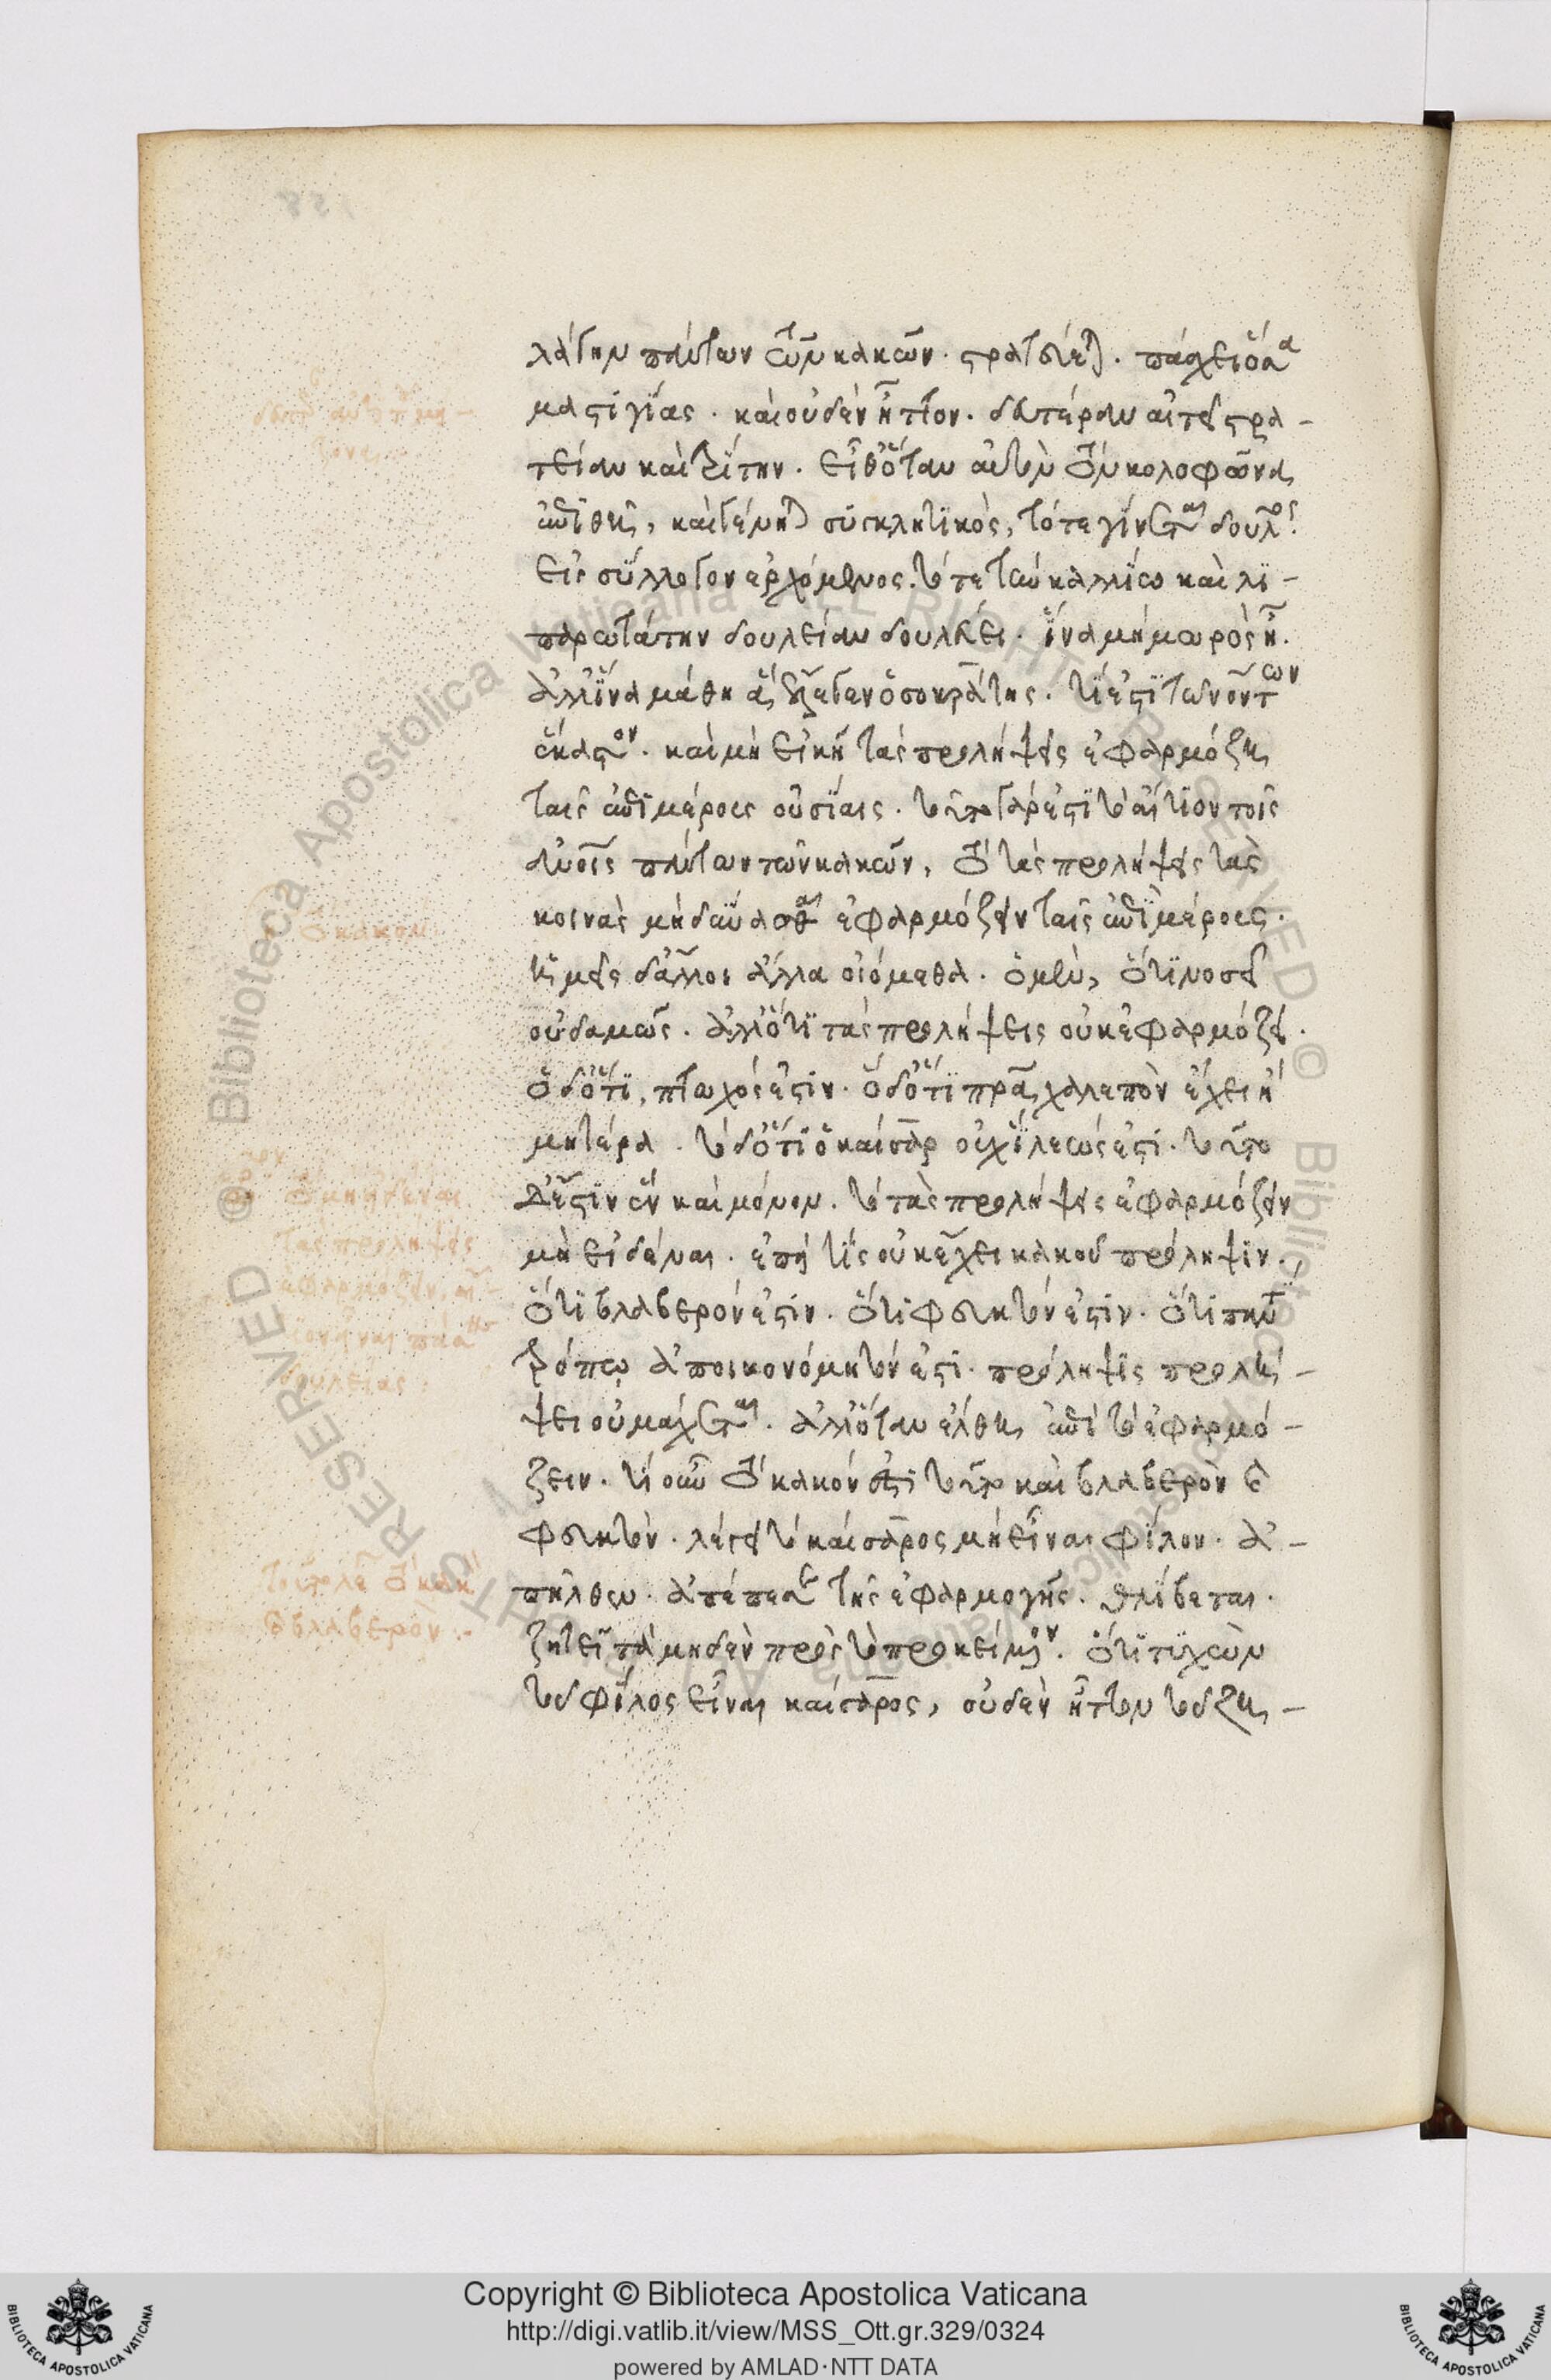 λάγην πάντων τῶν κακῶν. στρατεύεται. πάσχει ὅσα
μαστιγίας. καὶ οὐδὲν ἧττον. δευτέραν αἰτεῖ στρα-
τείαν καὶ τρίτην. εἶθ' ὅταν αὐτὸν τὸν κολοφῶνα
ἐπιθῇ, καὶ γένηται συγκλητικὸς, τότε γίνεται δοῦλος
εἰς σύλλογον ἐρχόμενος. τότε τὴν καλλίω καὶ λι-
παρωτάτην δουλείαν δουλεύει. ἵνα μὴ μωρὸς ᾖ.
ἀλλ' ἵνα μάθῃ ἃ ἔλεγεν ὁ σωκράτης. τί ἐστι τῶν ὄντων
ἕκαστον. καὶ μὴ εἰκῇ τὰς προλήψεις ἐφαρμόζῃ
ταῖς ἐπὶ μέρους οὐσίαις. τοῦτο γάρ ἐστι τὸ αἴτιον τοῖς
ἀνοις πάντων τῶν κακῶν, τὸ τὰς προλήψεις τὰς
κοινὰς μὴ δύνασθαι ἐφαρμόζειν ταῖς ἐπὶ μέρους.
ἡμεῖς δ' ἄλλοι ἄλλα οἰόμεθα. ὁ μὲν, ὅτι νοσεῖ
οὐδαμῶς. ἀλλ' ὅτι τὰς προλήψεις οὐκ ἐφαρμόζει.
ὁ δ' ὅτι, πτωχός ἐστιν. ὁ δ' ὅτι πρα χαλεπὸν ἔχει ἢ
μητέρα. τῷ δ' ὅτι ὁ καίσαρ οὐχ ἵλεώς ἐστι. τοῦτο
δ' ἐστὶν ἓν καὶ μόνον. τὸ τὰς προλήψεις ἐφαρμόζειν
μὴ εἰδέναι. ἐπεὶ τίς οὐκ ἔχει κακοῦ πρόληψιν.
ὅτι βλαβερόν ἐστιν. ὅτι φευκτόν ἐστιν. ὅτι παντὶ
τρόπῳ ἀποικονόμητόν ἐστι. πρόληψις προλή-
ψει οὐ μάχεται. ἀλλ' ὅταν ἔλθῃ ἐπὶ τὸ ἐφαρμό-
ζειν. τί οὖν τὸ κακόν ἐστι τοῦτο καὶ βλαβερὸν καὶ
φευκτόν. λέγει τὸ καίσαρος μὴ εἶναι φίλον. ἀ-
πῆλθεν. ἀπέπεσεν τῆς ἐφαρμογῆς. θλίβεται.
ζητεῖ τὰ μηδὲν πρὸς τὸ προκείμενον. ὅτι τυχὼν
τοῦ φίλος εἶναι καίσαρος, οὐδὲν ἧττον τοῦ ζη-
τὸ κακόν
τὸ μὴ εἰδέναι
τὰς προλήψεις
ἐφαρμόζειν
δουλείας
τὸ κακὸν
βλαβερόν
Copyright © Biblioteca Apostolica Vaticana
http://digi.vatlib.it/view/MSS_Ott.gr.329/0324
powered by AMLAD·NTT DATA
BIBLIOTECA APOSTOLICA VATICANA
BIBLIOTECA APOSTOLICA VATICANA